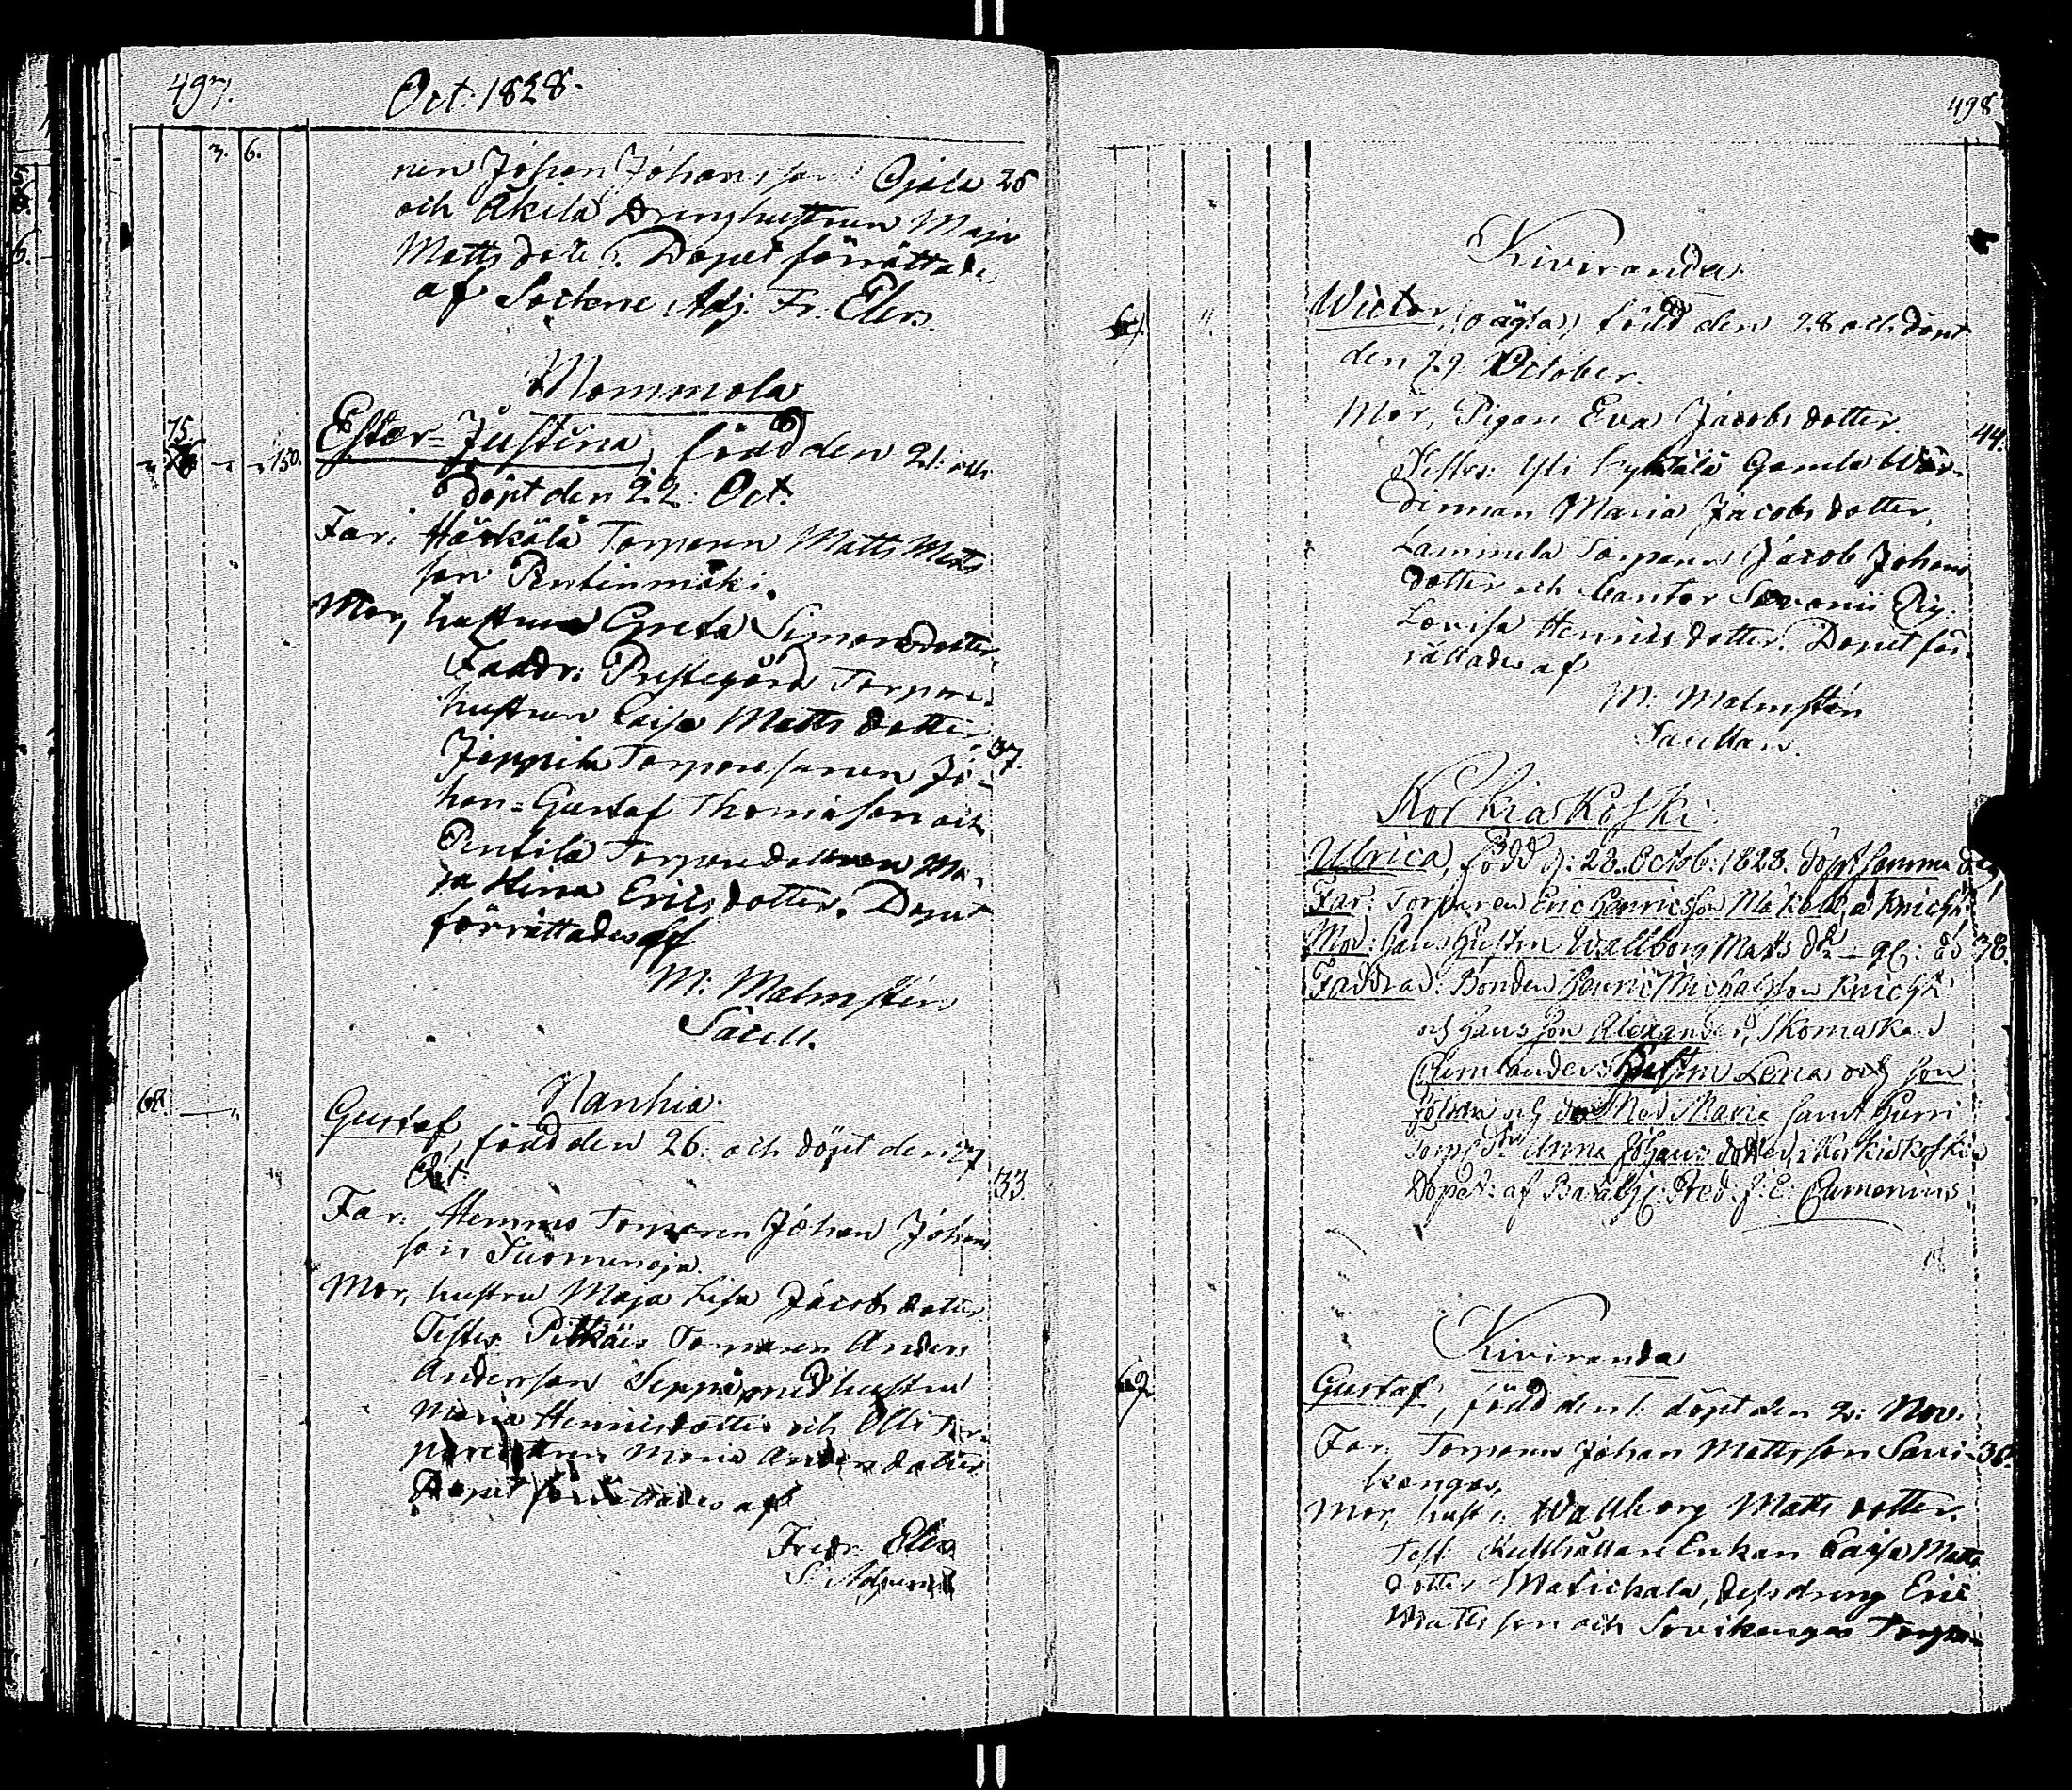 497.
Oct: 1828.
3. 6.
nen Johan Johansson Ojala 25
och Äkilä Drenghustrun Maja
Matts doter. Dopet förrättades
af Sockne Adj. Fr. Elers.
Mommola
75
150.
Ester=Justina, född den 21: och
döpt den 22: Oct.
Far: Härkälä Torparen Matts Matts
son Pentinmäki.
Mor, hustrun Greta Simonsdotter,
Faddr: Prestegårds Torpare
hustrun Caisa Matts dotter,
37.
Jäppilä Torpare sonen Jo-
han=Gustaf Thomasson och
Pentilä Torpare dottren Ma-
ja Stina Ericsdotter. Dopet
förrättades af
M: Malmstén
Sacell.
Nanhia.
68.
Gustaf, född den 26. och döpt den 27
Oct.
33.
Far: Hemmo Torparen Johan Johans
son Suomenoja.
Mor, hustru Maja Lisa Jacobs dotter
Testes Torparen Anders
Andersson Seppä med hustru
Maria Henricsdotter och Olli Tor-
parehustrun Maria Anders dotter
Dopet förrättades af
Fredr. Elers
S. Adjunct
498
Kiviranda.
Wictor, (oägta) född den 28 och döpt
den 29 October.
Mor, Pigan Eva Jacobs dotter.
44.
Testes: Yli Gamla Wär-
dinnan Maria Jacobs dotter,
Lammela Torparen Jacob Johans
dotter och Cantor Savonii Pig.
Lovisa Henricsdotter. Dopet för-
rättades af
M: Malmstén
Sacellan.
Korkiakoski.
Ulrica, född d: 28. Octob: 1828. döpt samma dag
Far: Torparen Eric Henricsson Mäkelä, å Knichti
Mod: Hans Hustru Wallborg Matts dr 38.
Faddrar: Bonden Henric Michelsson Knichti
och Hans son Alexander, Skomakar
Hustru Lena och son
Johan och Mod. Maria samt
Anna Johans dotter, i Korkiakoski
Döpet: af Batalj: Pred: J: E: Cumenius
Kiviranda
69
Gustaf, född den 1: döpt den 2: Nov:
Far, Torparen Johan Mattsson Savi- 38.
kangas,
Mor, hust: Wallborg Matts dotter.
Test. Rusthållare Enkan Caisa Matts
dotter Matichala, dess dreng Eric
Matts son och Savikangas Torpa-